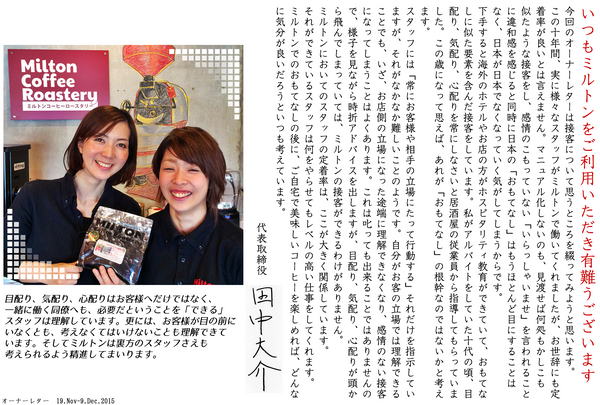 いつもミルトンをご利用いただき有難うございます
今回のオーナーレターは接客について思うところを綴ってみようと思います。
この十年間、実に様々なスタッフがミルトンで働いてくれましたが、お世辞にも定
着率が良いとは言えません。マニュアル化しないのも、見渡せば何処もかしこも
似たような接客をし、感情のこもっていない「いらっしゃいませ」を言われること
に違和感を感じると同時に日本の「おもてなし」はもうほとんど目にすることは
なく、日本が日本でなくなっていく気がしてしまうからです。
下手すると海外のホテルやお店の方がホスピタリティ教育ができていて、おもてな
しに似た要素を含んだ接客をしています。私がアルバイトをしていた十代の頃、目
配り、気配り、心配りを常にしなさいと居酒屋の従業員から指導してもらっていま
した。この歳になって思えば、あれが「おもてなし」の根幹なのではないかと考え
ます。
スタッフには「常にお客様や相手の立場にたって行動する」それだけを指示してい
ますが、それがなかなか難しいことのようです。自分がお客の立場では理解できる
ことでも、いざ、お店側の立場になった途端に理解できなくなり、感情のない接客
になってしまうことはよくあります。これは叱っても出来ることではありませんの
で、様子を見ながら時折アドバイスを出しますが、目配り、気配り、心配りが頭か
ら飛んでしまっていては、ミルトンの接客ができるわけがありません。
ミルトンにおいてのスタッフの定着率は、ここが大きく関係しています。
それができているスタッフは何をやらせてもレベルの高い仕事をしてくれます。
ミルトンでのおもてなしの後に、ご自宅で美味しいコーヒーを楽しめれば、どんな
に気分が良いだろうといつも考えています。
代表取締役
田中大介
Milton
Coffee
Roastery
ミルトンコーヒーロースタリー
MILTON
目配り、気配り、心配りはお客様へだけではなく、
一緒に働く同僚へも、必要だということを「できる」
スタッフは理解しています。更には、お客様が目の前に
いなくとも、考えなくてはいけないことも理解できて
います。そしてミルトンは裏方のスタッフさえも
考えられるよう精進してまいります。
オーナーレター 19.Nov-9.Dec.2015